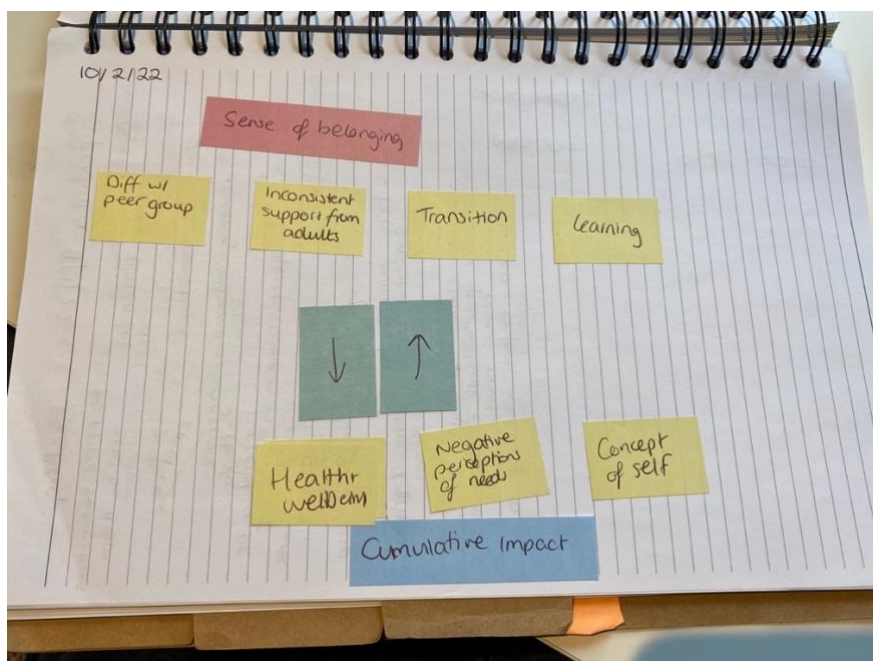 10/2/22
Sense of belonging
Diff w/
peer group
Inconsistent
support from
adults
Transition
Learning
↓
↑
Health
Negative
perceptions
of needs
Concept
of self
Cumulative Impact